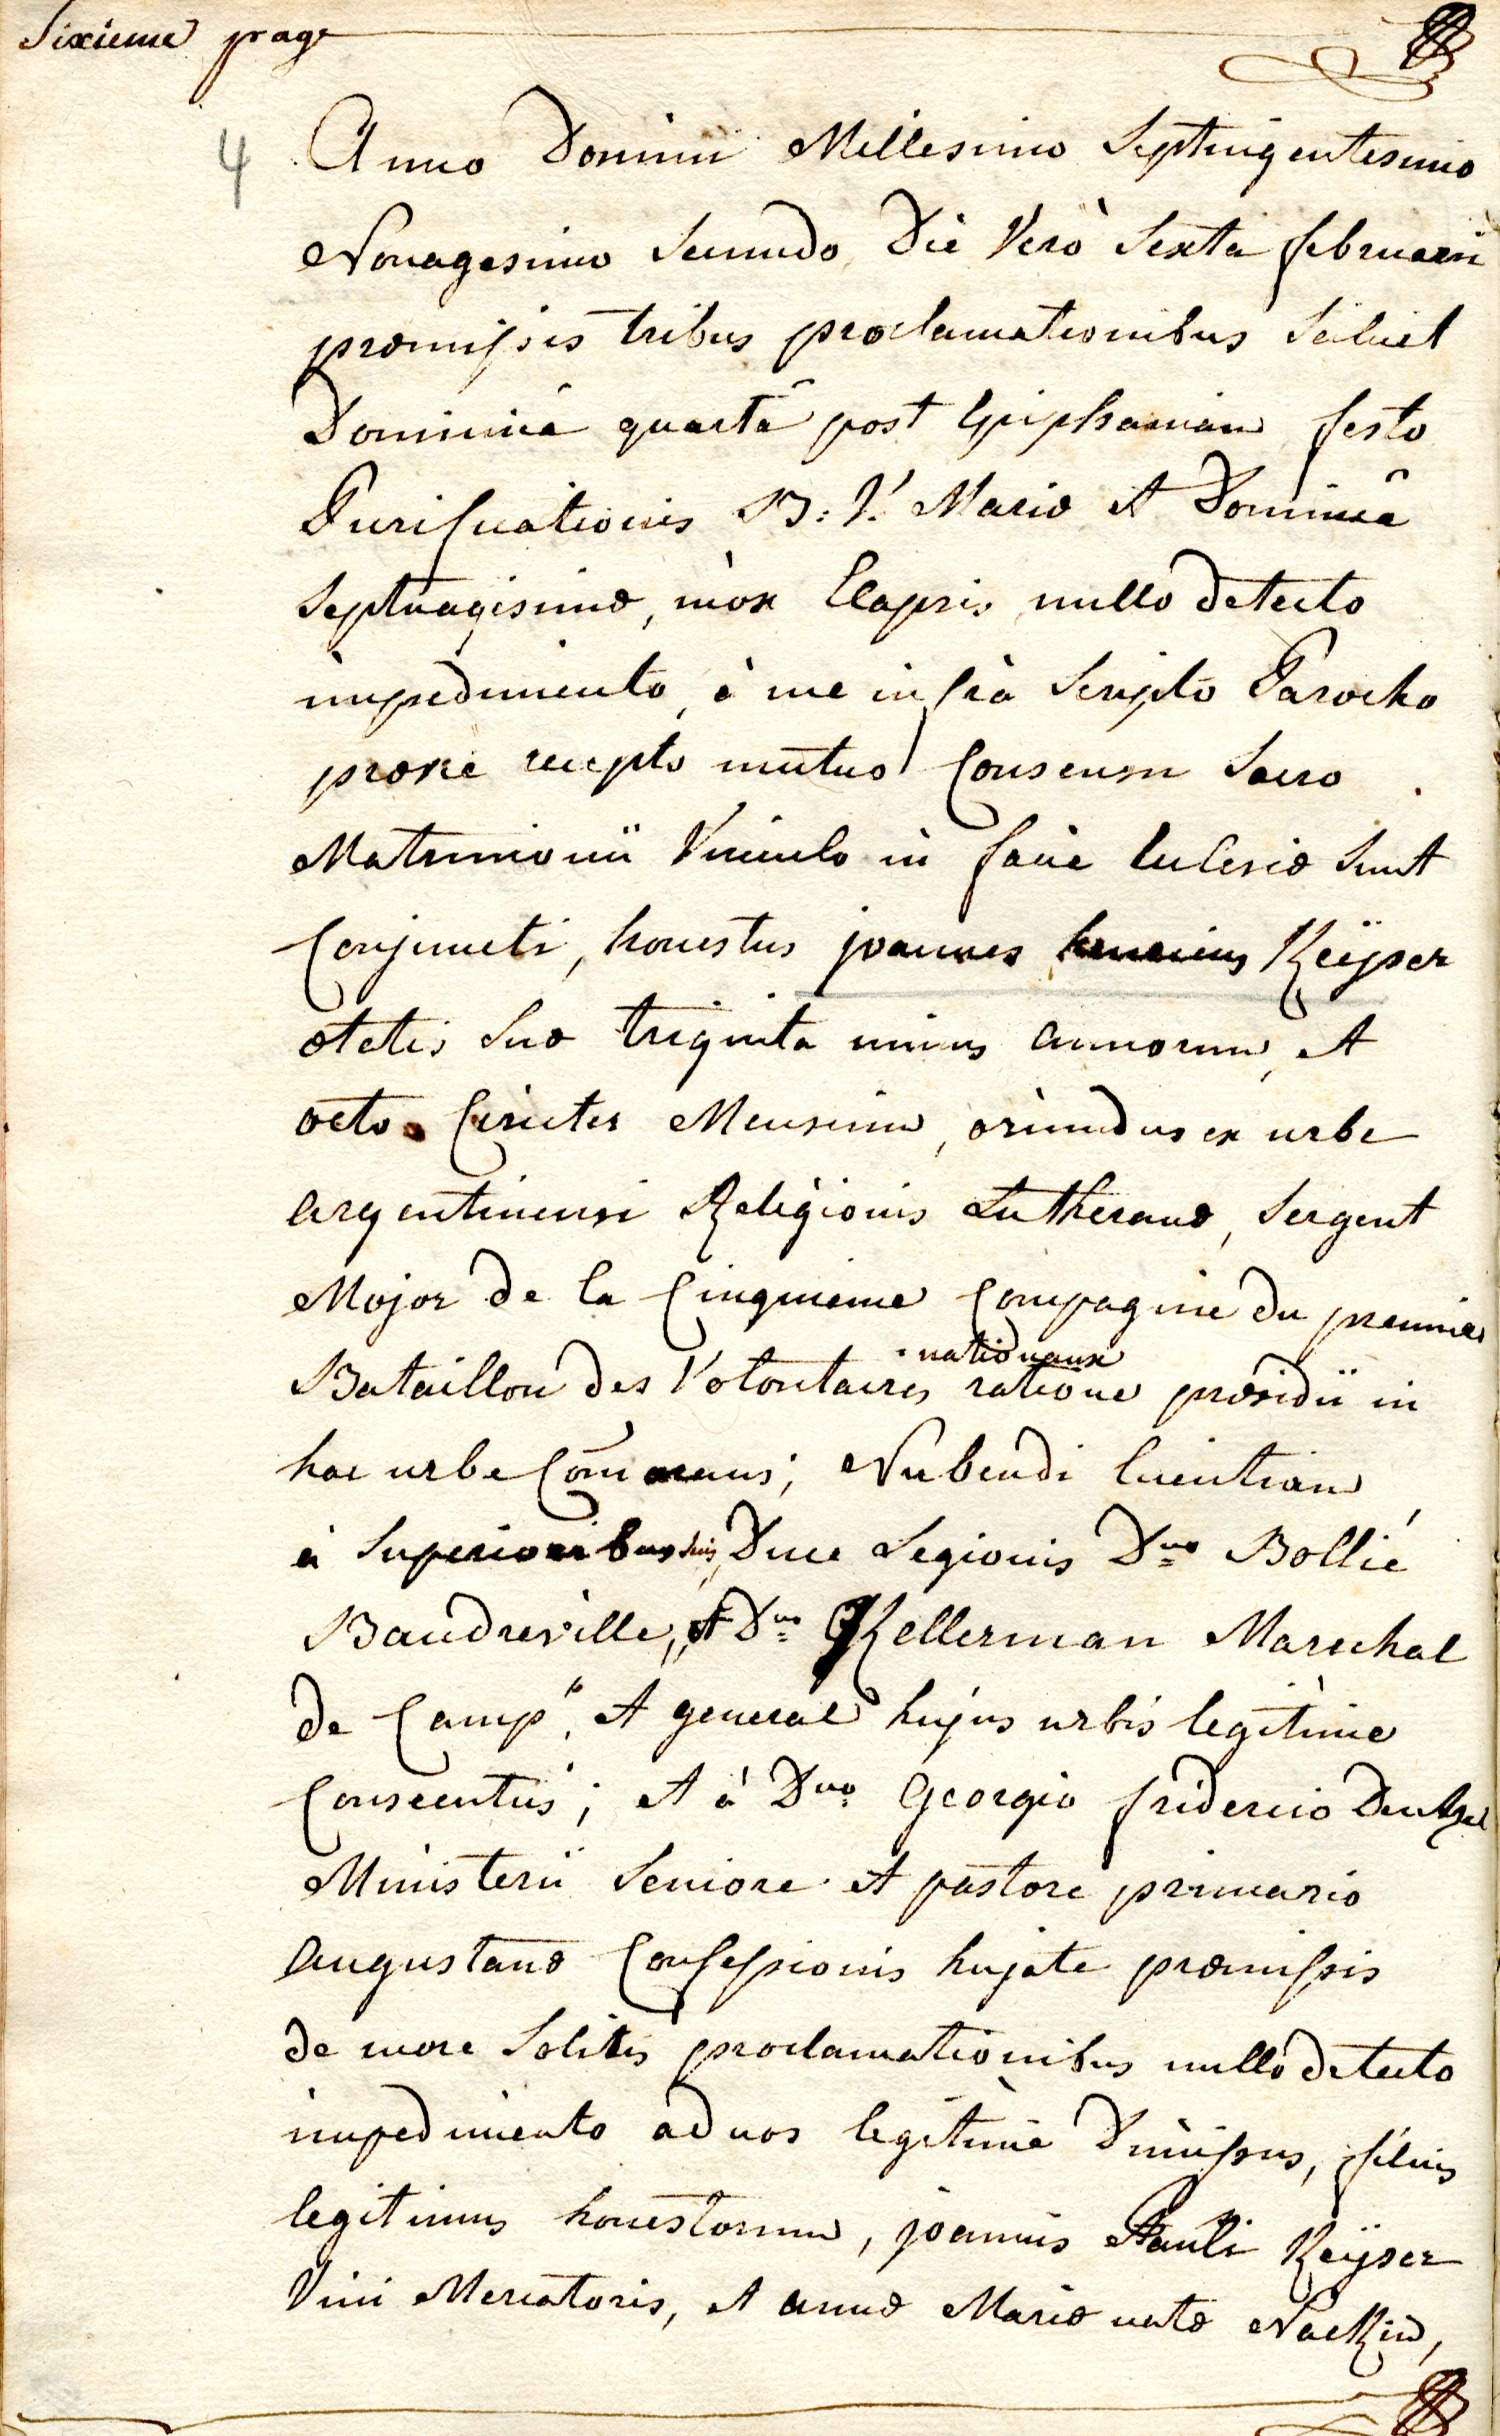 Sixieme page
4 Anno Domini Millesimo Septingentesimo
Nonagesimo Secundo Die Verò Sexta februarii
præmissis tribus proclamationibus Scilicet
Dominicâ quartâ post Epiphaniam festo
Purificationis B: V. Mariæ et Dominicâ
Septuagesimæ, mox Elapsis nullo detecto
impedimento, à me infrà Scripto Parocho
præviè recepto mutuo Consensu Sacro
Matrimonii Vinculo in faciê Ecclesiæ Sunt
Conjuncti, honestus joannes Keÿser
ætatis Suæ triginta unius annorum, et
octo Circiter Mensium, oriundus ex urbe
argentinensi Religionis Lutheranæ, Sergent
Major de la Cinquieme Compagnie du premier
nationaux
Bataillon des Volontaires ratione præsidii in
hac urbe Com̄orans; Nubendi licentiam
à Superioribus suis, Duce Legionis Dno Bollié
Baudreville, et Dno Kellerman Marechal
de Camp, et general hujus urbis legitime
Consecutus; et à Dno Georgio friderico Dentzel
Ministerii Seniore et pastore primario
augustanæ Confessionis hujate præmissis
de more Solitis proclamationibus nullo detecto
impedimento ad nos legitimè Dimissus, filius
legitimus honestorum, joannis Pauli Keÿser
Vini Mercatoris, et annæ Mariæ natæ Nackin,